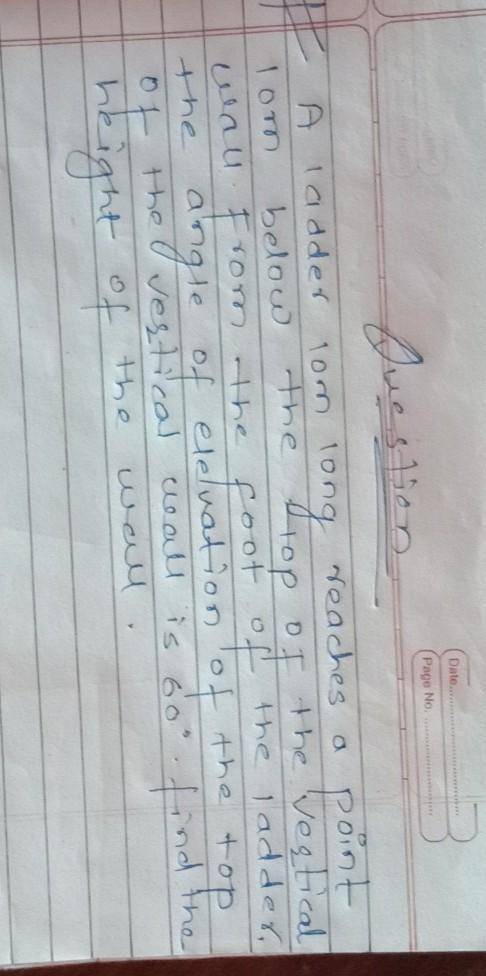 Date
Page No.
Question
A ladder 10m long reaches a point
10m below the top of the vertical
wall. from the foot of the ladder,
the angle of elevation of the top
of the vertical wall is 60°. find the
height of the wall.